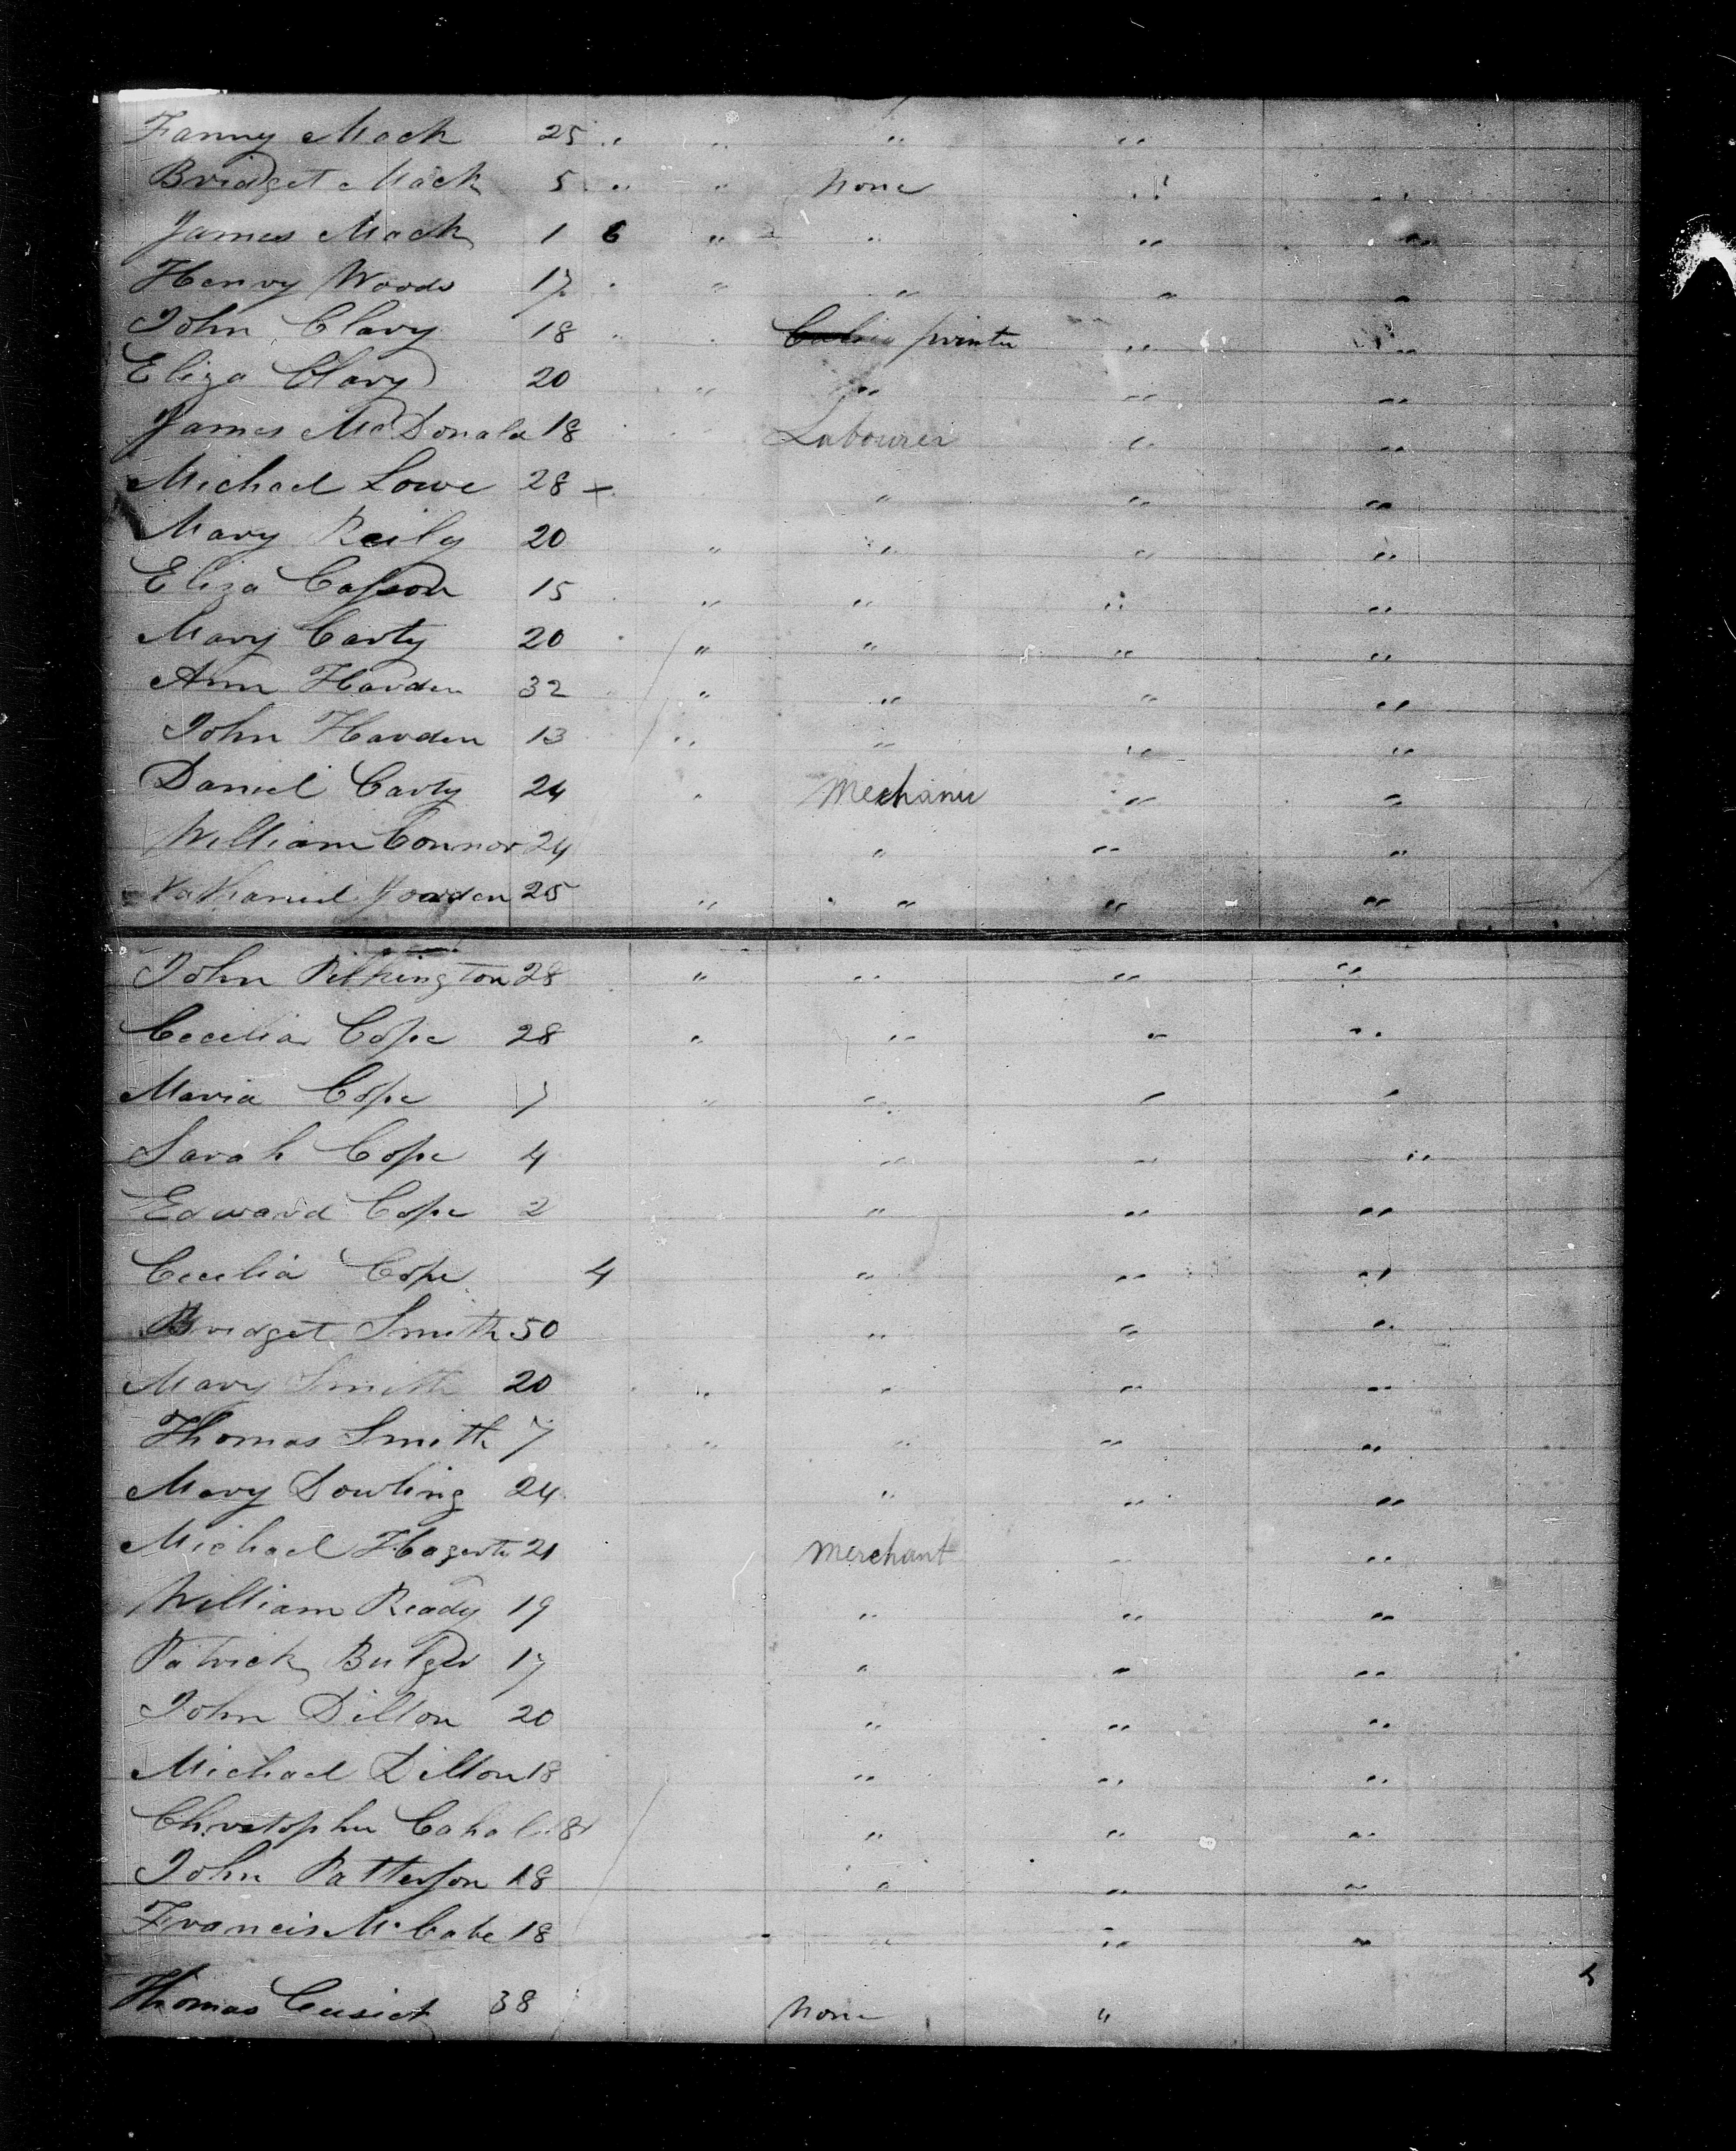 Fanny Mack 25 " " " "
Bridget Mack 5 " " None " "
James Mack 1 6 " " " "
Henry Woods 17 " " " "
John Clary 18 " " printer " "
Eliza Clary 20 " " " "
James McDonald 18 Labourer " "
Michael Lowe 28 + " " "
Mary Reily 20 " " " "
Eliza Casson 15 " " " "
Mary Carty 20 " " " "
Ann Harden 32 " " " "
John Harden 13 " " " "
Daniel Carty 24 " Mechanic " "
William Connor 24 " " "
Nathaniel 25 " " " "
John Pilkington 28 " " " "
Cecelia Cope 28 " " " "
Maria Cope 7 " " " "
Sarah Cope 4 " " "
Edward Cope 2 " " "
Cecelia Cope 4 " " "
Bridget Smith 50 " " "
Mary Smith 20 " " " "
Thomas Smith 7 " " " "
Mary Dowling 24 " " "
Michael Hagerty 21 Merchant " "
William Ready 19 " " "
Patrick Bulger 17 " " "
John Dillon 20 " " "
Michael Dillon 18 " " "
Christopher Cahal 18 " " "
John Patterson 18 " " "
Francis McCabe 18 " " "
Thomas Cusick 38 None "